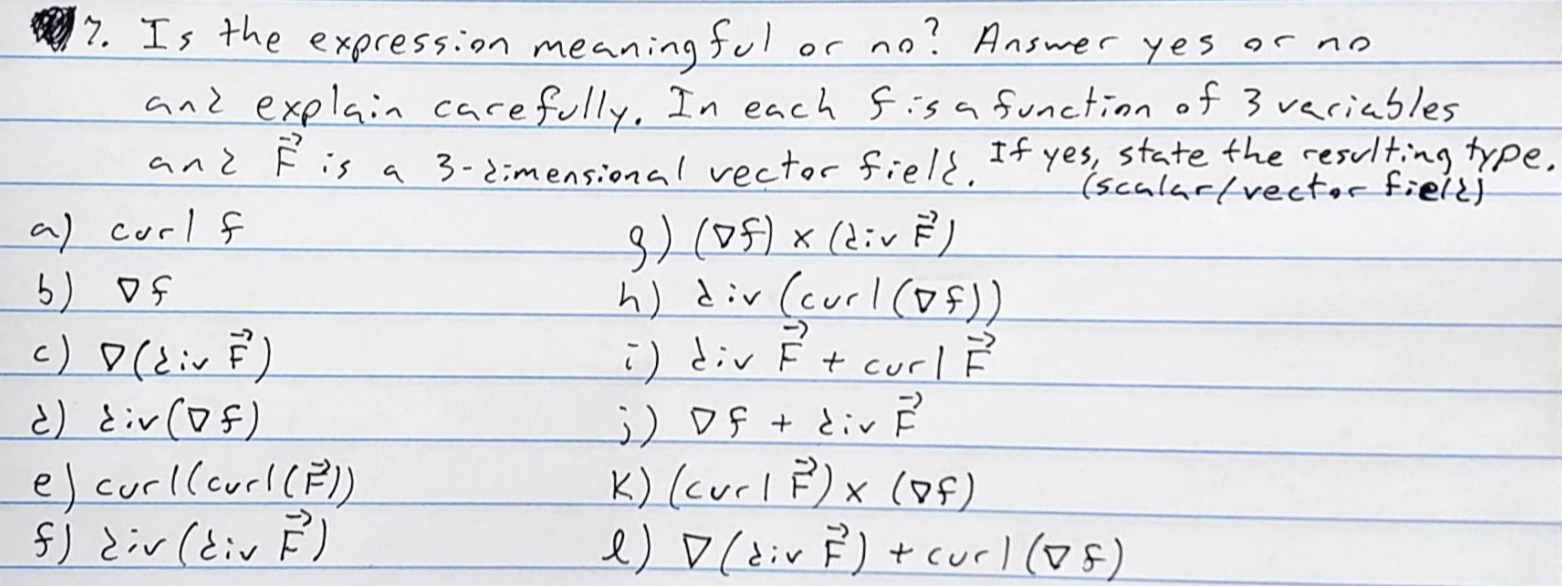 7. Is the expression meaningful or no? Answer yes or no
and explain carefully. In each f is a function of 3 variables
and F⃗ is a 3-dimensional vector field. If yes, state the resulting type.
(scalar/vector field)
a) curl f
b) ∇f
c) ∇(div F⃗)
d) div(∇f)
e) curl(curl(F⃗))
f) div(div F⃗)
g) (∇f) × (div F⃗)
h) div(curl(∇f))
i) div F⃗ + curl F⃗
j) ∇f + div F⃗
k) (curl F⃗) × (∇f)
l) ∇(div F⃗) + curl(∇f)